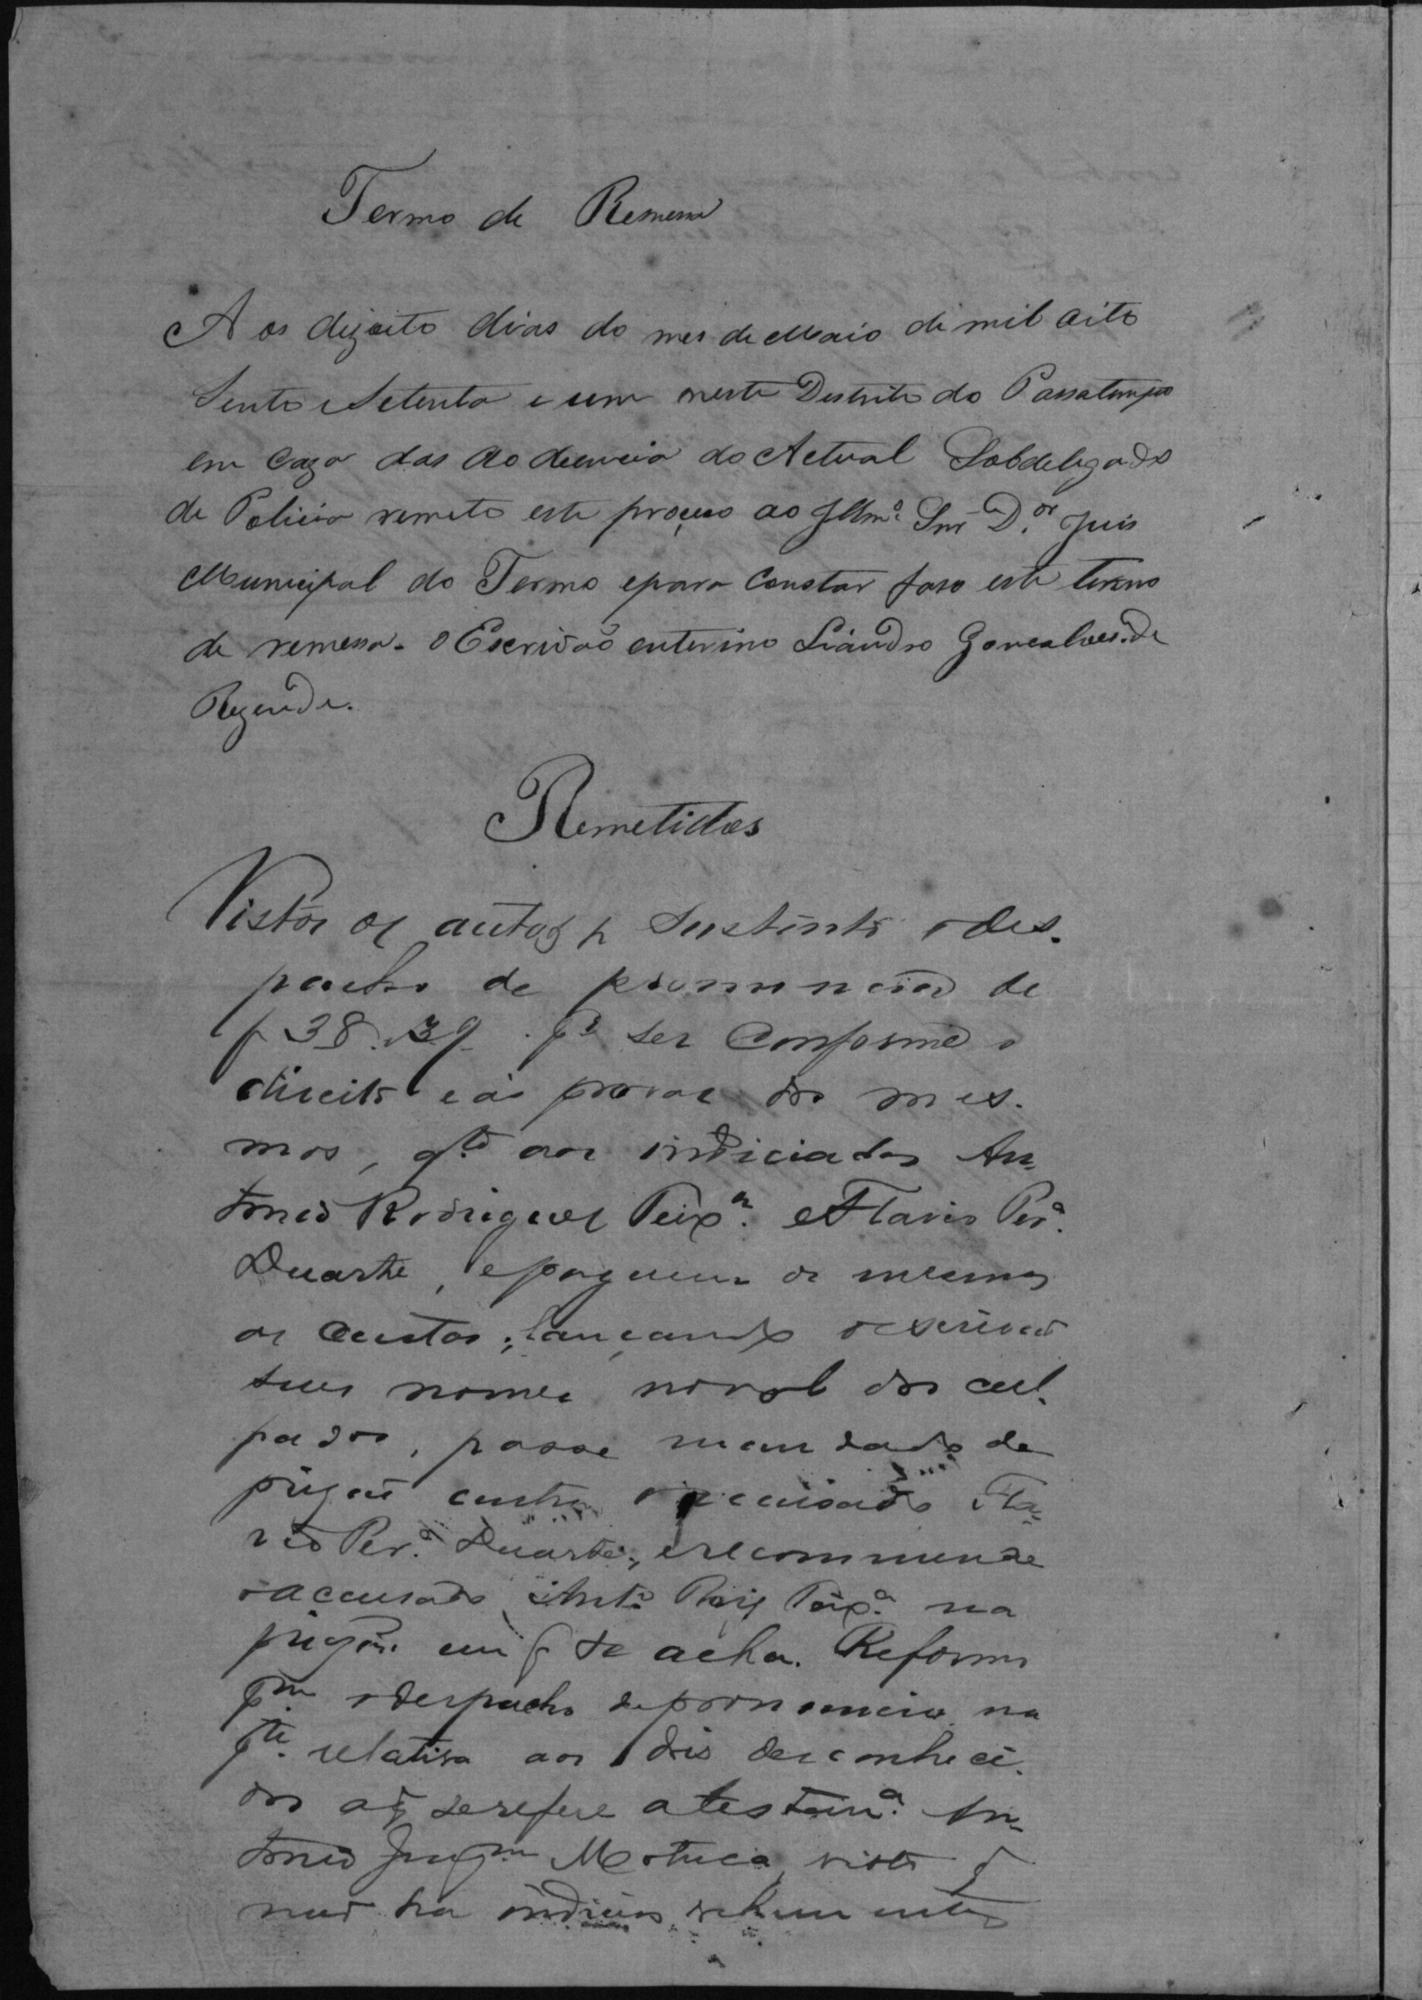 Termo de Remessa
Aos dizoito dias do mes de Maio de mil oito
Sento e Setenta e um neste Destrito do Passatempo
em Caza das Aodiencia do Actual Sobdelegado
de Policia remeto este proçeso ao Illmº Snr D.or Juis
Municipal do Termo e para Constar faso este termo
de remessa. O Escrivaõ enterino Liandro Goncalves de
Rezende.
Remetidos
Vistos os autos, Sustento o des-
pacho de pronuncia de
f 38 . 39 . pr ser Conforme o
direito e ás provas dos mes-
mos, qto aos indiciados An-
tonio Rodrigues Teixra. e Flavio Pera.
Duarte, e paguem os mesmos
as Custas; lançando o escrivaõ
seus nomes no rol dos cul-
pados, passe mandado de
prizaõ contra o accusado Fla-
vio Pera. Duarte, e recommende
o accusado Anto Roiz Teixa. na
prizaõ em q se acha. Reformo
pm o despacho de pronuncia na
pte. relativa aos dois desconheci-
dos a q se refere a testema. An-
tonio Joaqm Motuca, visto q
naõ ha indicios vehementes